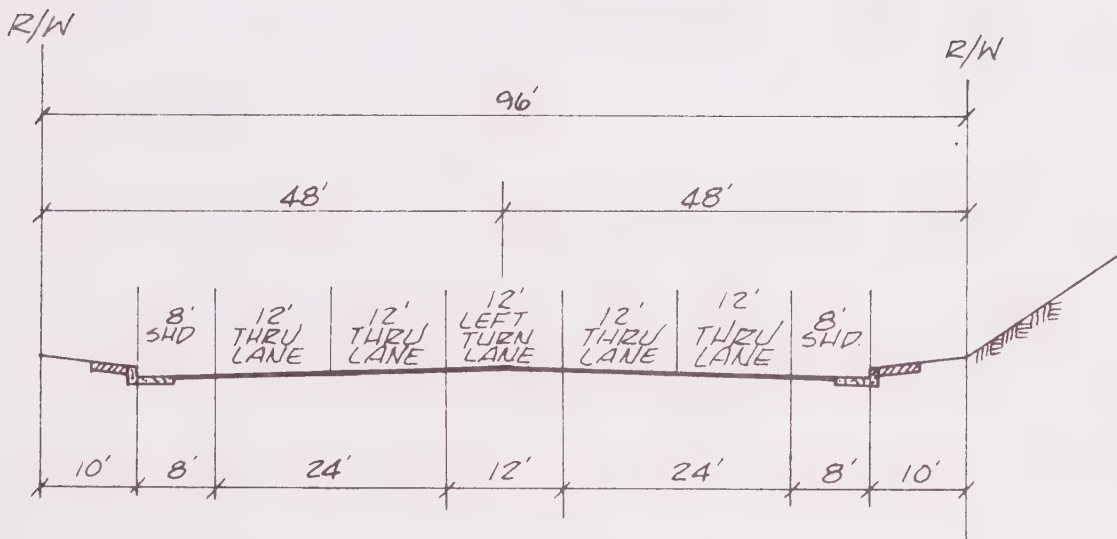 R/W
R/W
96'
48'
48'
8'
SHD
12'
THRU
LANE
12'
THRU
LANE
12'
LEFT
TURN
LANE
12'
THRU
LANE
12'
THRU
LANE
8'
SHD.
10'
8'
24'
12'
24'
8'
10'